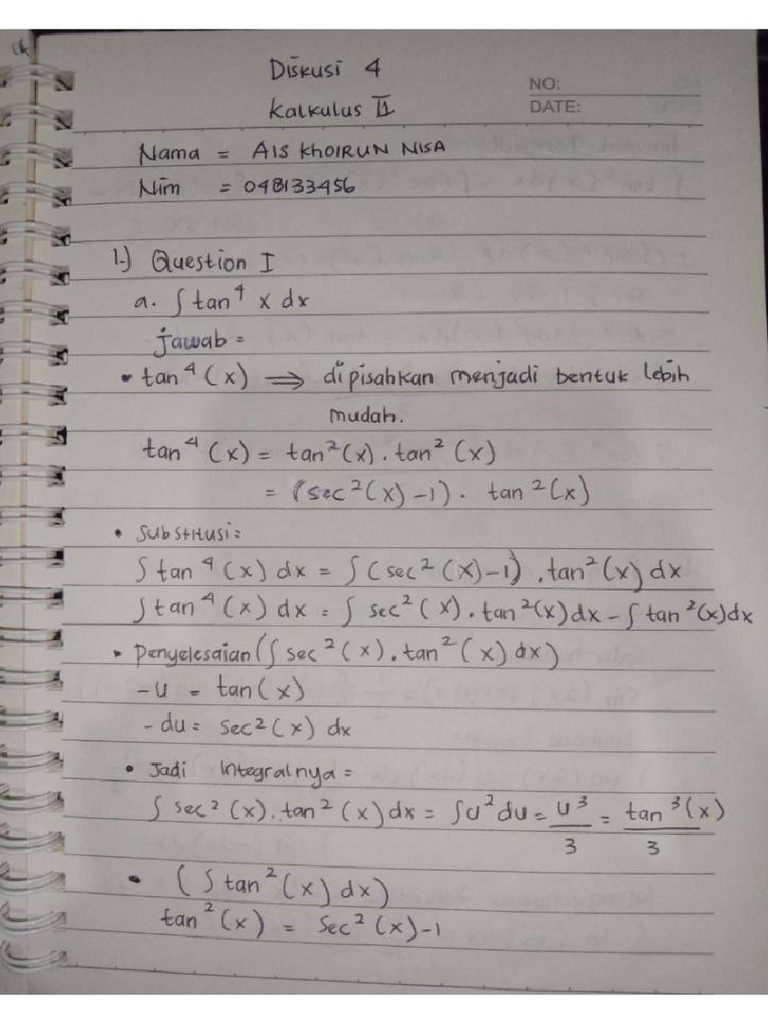 Diskusi 4
NO:
Kalkulus II
DATE:
Nama = AIS KHOIRUN NISA
Nim = 048133456
1.) Question I
a. ∫ tan⁴ x dx
jawab =
• tan⁴ (x) ⟹ dipisahkan menjadi bentuk lebih
mudah.
tan⁴ (x) = tan²(x) . tan² (x)
= (sec²(x)-1) . tan²(x)
• Substitusi:
∫ tan⁴ (x) dx = ∫ (sec² (x)-1) . tan²(x) dx
∫ tan⁴ (x) dx = ∫ sec² (x) . tan²(x) dx - ∫ tan²(x) dx
• Penyelesaian (∫ sec² (x) . tan² (x) dx)
- u = tan(x)
- du = sec²(x) dx
• Jadi Integralnya =
∫ sec² (x) . tan² (x) dx = ∫ u² du = u³/3 = tan³(x)/3
• (∫ tan² (x) dx)
tan² (x) = sec² (x) -1